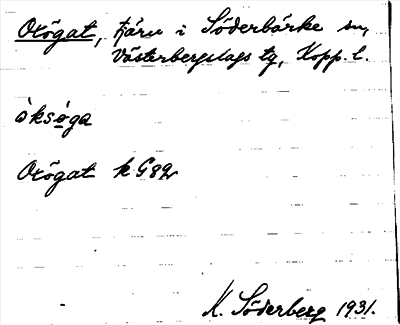 Oxögat, tjärn i Söderbärke sn,
Västerbergslags tg, Kopp. l.
òksǫga
Oxögat k G82
K. Söderberg 1931.